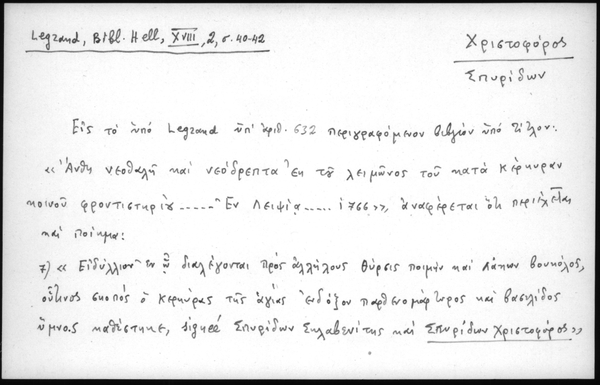 Legrand, Bibl. Hell, XVIII, 2, σ. 40-42
Χριστοφόρος
Σπυρίδων
Εἰς τὸ ὑπό Legrand ὑπ' ἀριθ. 632 περιγραφόμενον βιβλίον ὑπό τίτλον:
«Ἄνθη νεοθαλῆ καὶ νεόδρεπτα ἐκ τοῦ λειμῶνος τοῦ κατὰ Κέρκυραν
κοινοῦ φροντιστηρίου ...... Ἐν Λειψίᾳ ..... 1766», ἀναφέρεται ὅτι περιέχεται
καὶ ποίημα:
7) « Εἰδύλλιον ἐν ᾧ διαλέγονται πρὸς ἀλλήλους Θύρσις ποιμὴν καὶ Λάκων βουκόλος,
οὗτινος σκοπὸς ὁ Κερκύρας τῆς ἁγίας ἐνδόξου παρθενομάρτυρος καὶ βασιλίδος
ὕμνος καθέστηκε, signé Σπυρίδων Σκλαβενίτης καὶ Σπυρίδων Χριστοφόρος»